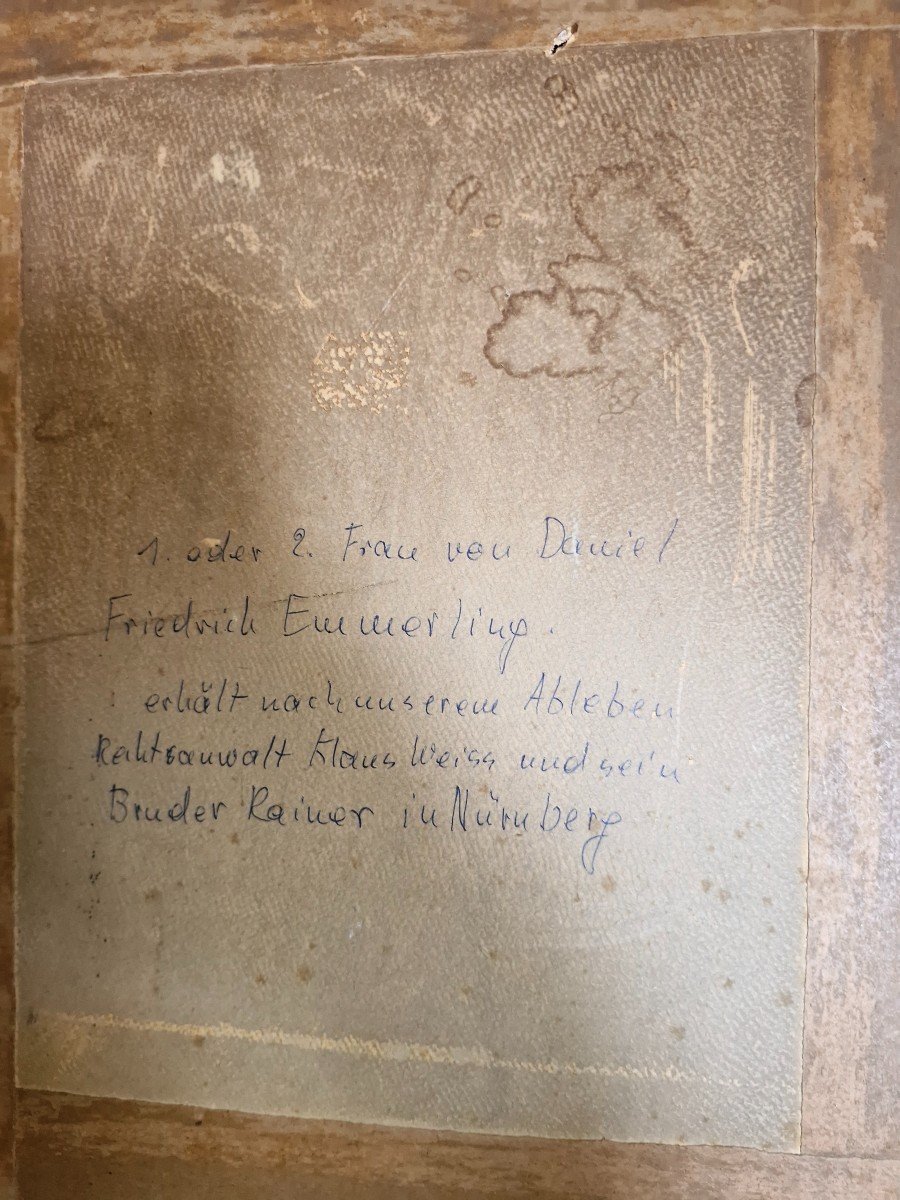 1. oder 2. Frau von Daniel
Friedrich Emmerling.
erhält nach unserem Ableben
Rehtsanwalt Klaus Weiss und sein
Bruder Rainer in Nürnberg